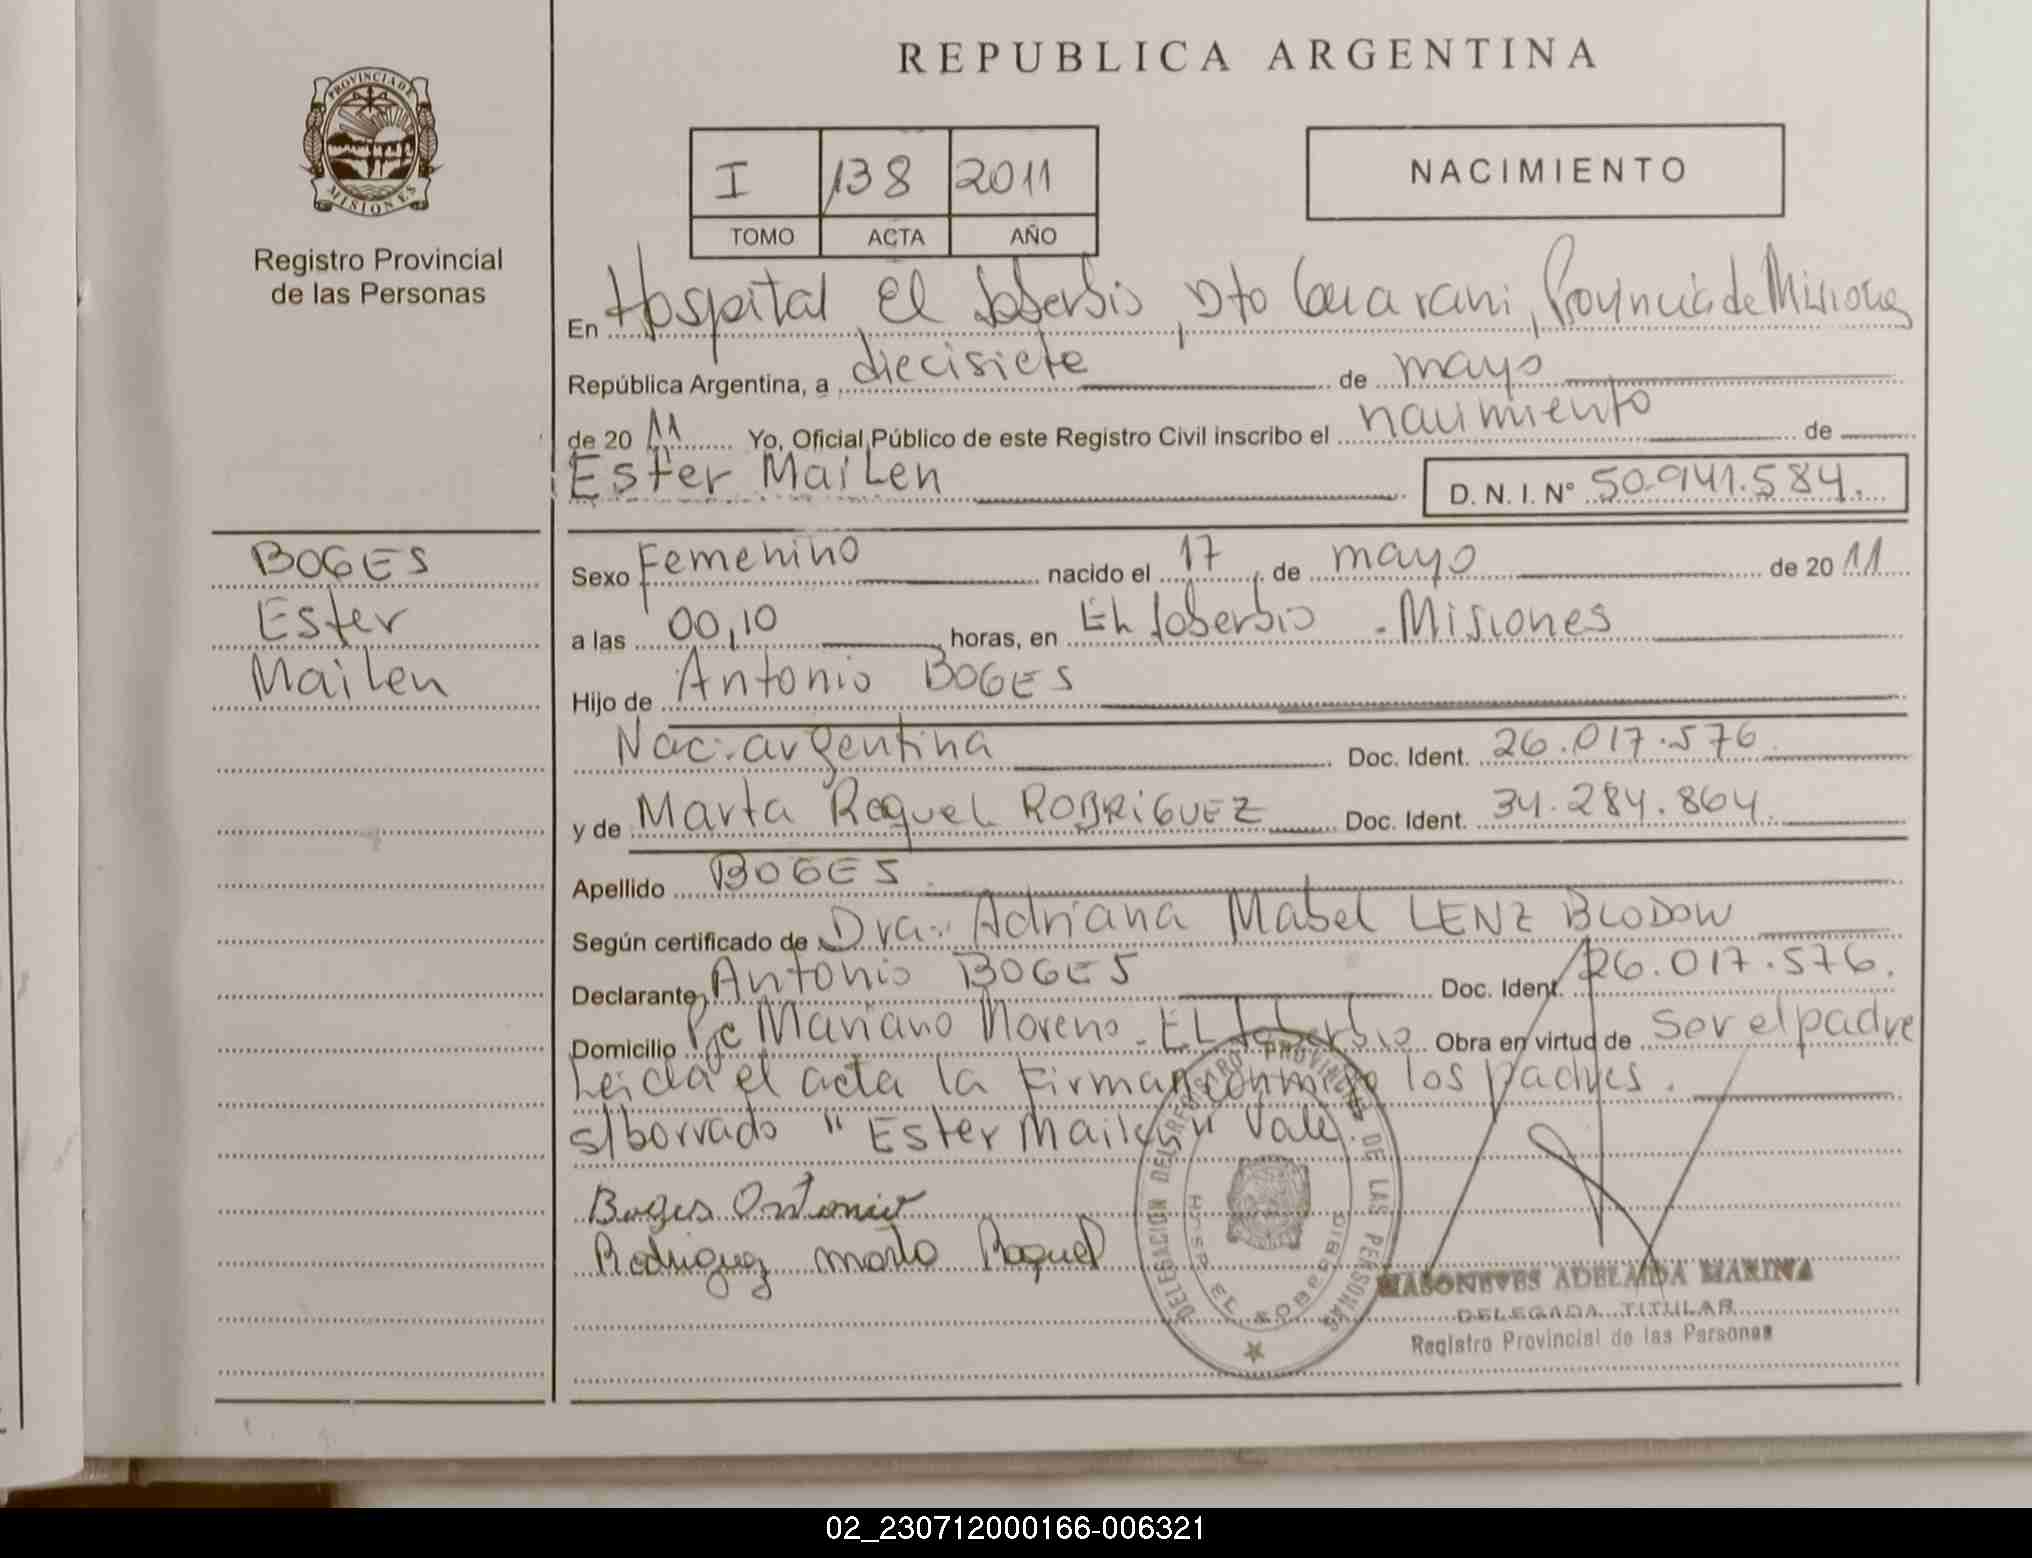 REPUBLICA ARGENTINA
PROVINCIA DE
MISIONES
Registro Provincial
de las Personas
I 138 2011
TOMO ACTA AÑO
NACIMIENTO
En Hospital El Soberbio, Dto Guarani, Provincia de Misiones
República Argentina, a diecisiete de mayo
de 20 11 Yo, Oficial Público de este Registro Civil inscribo el nacimiento de
Ester MaiLen D. N. I. N° 50.941.584.
BOGES
Ester
MaiLen
Sexo Femenino nacido el 17 de mayo de 20 11
a las 00,10 horas, en EL Soberbio - Misiones
Hijo de Antonio BOGES
Nac. argentina Doc. Ident. 26.017.576
y de Marta Raquel RODRIGUEZ Doc. Ident. 34.284.864
Apellido BOGES
Según certificado de Dra. Adriana Mabel LENZ BLODOW
Declarante Antonio BOGES Doc. Ident. 26.017.576.
Domicilio Pje Mariano Moreno - EL Soberbio Obra en virtud de ser el padre
Leida el acta la firman conmigo los padres.
s/borrado "Ester Mailen" Vale.
Boges Antonio
Rodriguez Marta Raquel
DELEGACION DEL REGISTRO PROVINCIAL DE LAS PERSONAS
HOSP. EL SOBERBIO
MASONEVES ADELAIDA MARINA
DELEGADA TITULAR
Registro Provincial de las Personas
02_230712000166-006321